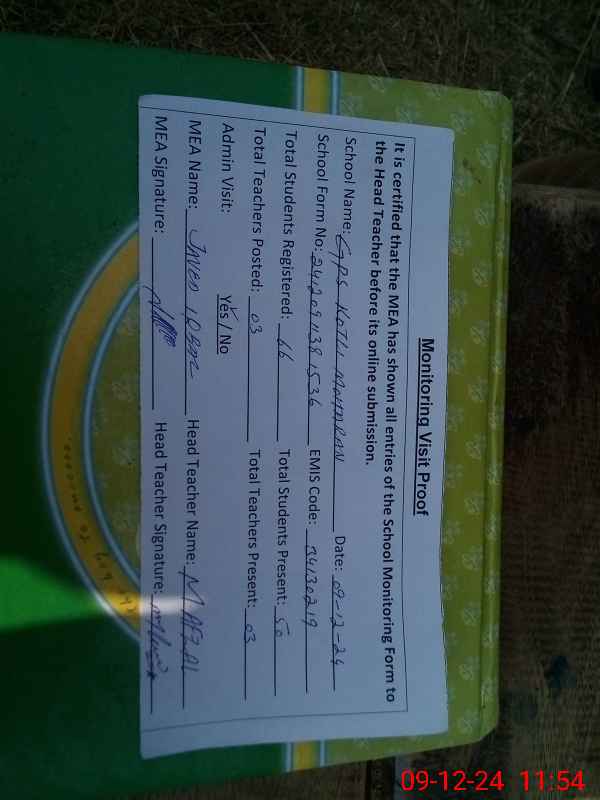 Monitoring Visit Proof
It is certified that the MEA has shown all entries of the School Monitoring Form to
the Head Teacher before its online submission.
School Name: GPS KOTLI Date: 09-12-24
School Form No: EMIS Code: 34130219
Total Students Registered: 66 Total Students Present: 50
Total Teachers Posted: 03 Total Teachers Present: 03
Admin Visit: Yes / No
MEA Name: JAVED IQBAL Head Teacher Name: M. AFZAL
MEA Signature: Head Teacher Signature:
09-12-24 11:54